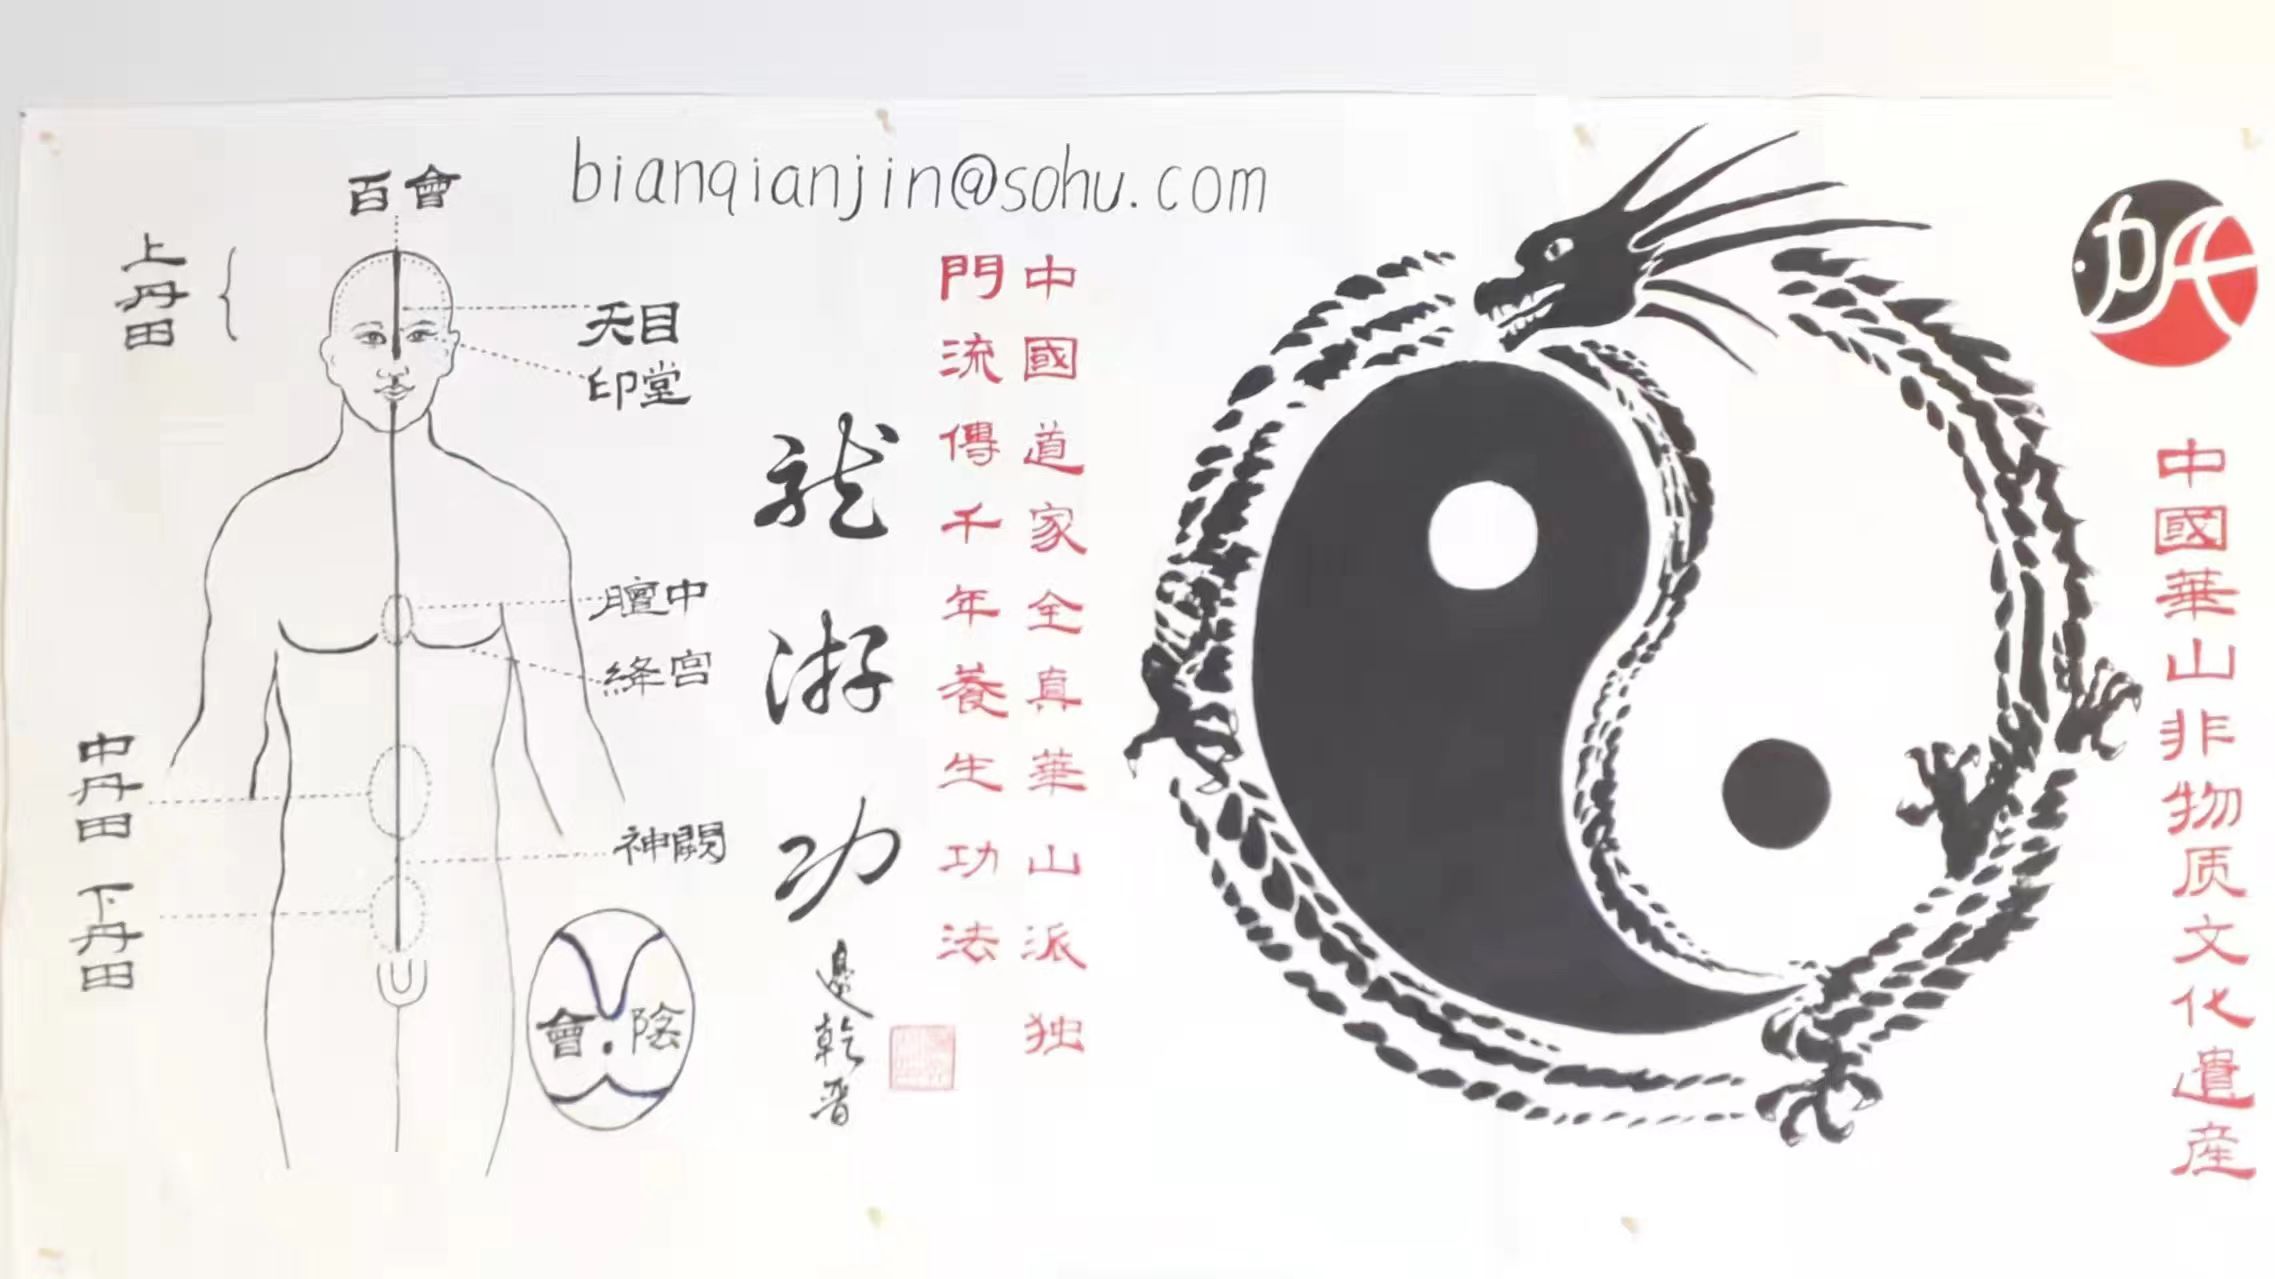 bianqianjin@sohu.com
百會
上丹田
天目
印堂
膻中
絳宫
中丹田
神闕
下丹田
會·陰
龍游功
邊乾晋
中國道家全真華山派独
門流傳千年養生功法
中國華山非物质文化遺産